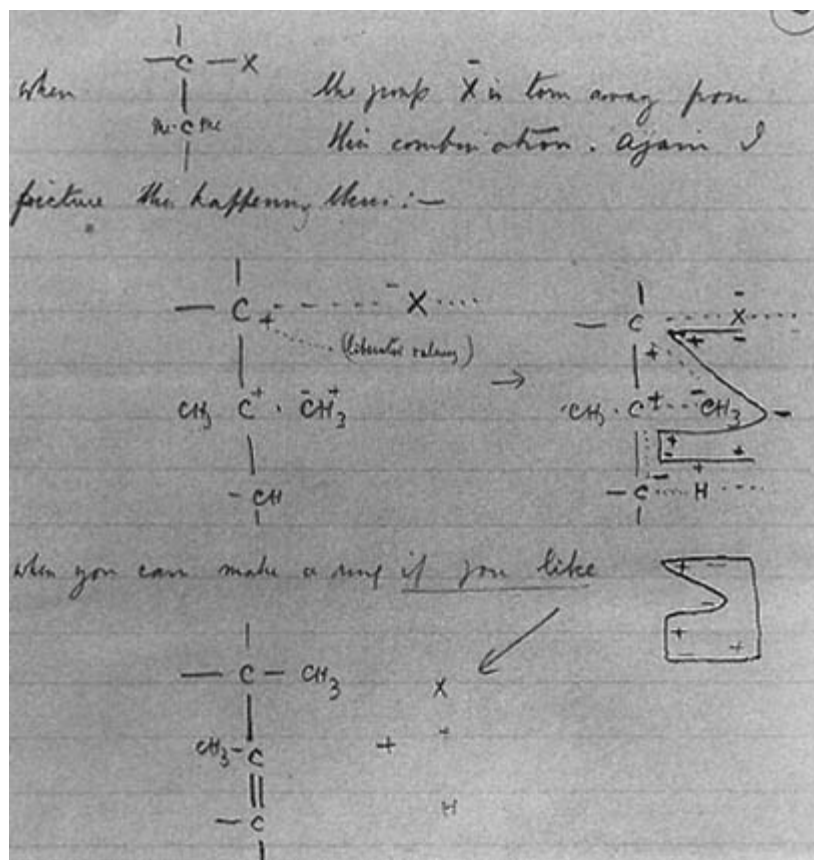 C — X
when the group X̄ is torn away from
Me · C Me
this combination. Again I
picture this happening thus :—
— C + - - - - ⁻X ....
(liberated valency)
CH₃ C⁺ · ⁻CH₃⁺
- CH
→
— C + ..... X̄ ....
+ -
CH₃ · C± ---- ⁻CH₃ -
+ - + +
— C⁻ --- H - - - -
when you can make a ring if you like
+ - - + - +
— C — CH₃ X
CH₃ - C + +
— C H